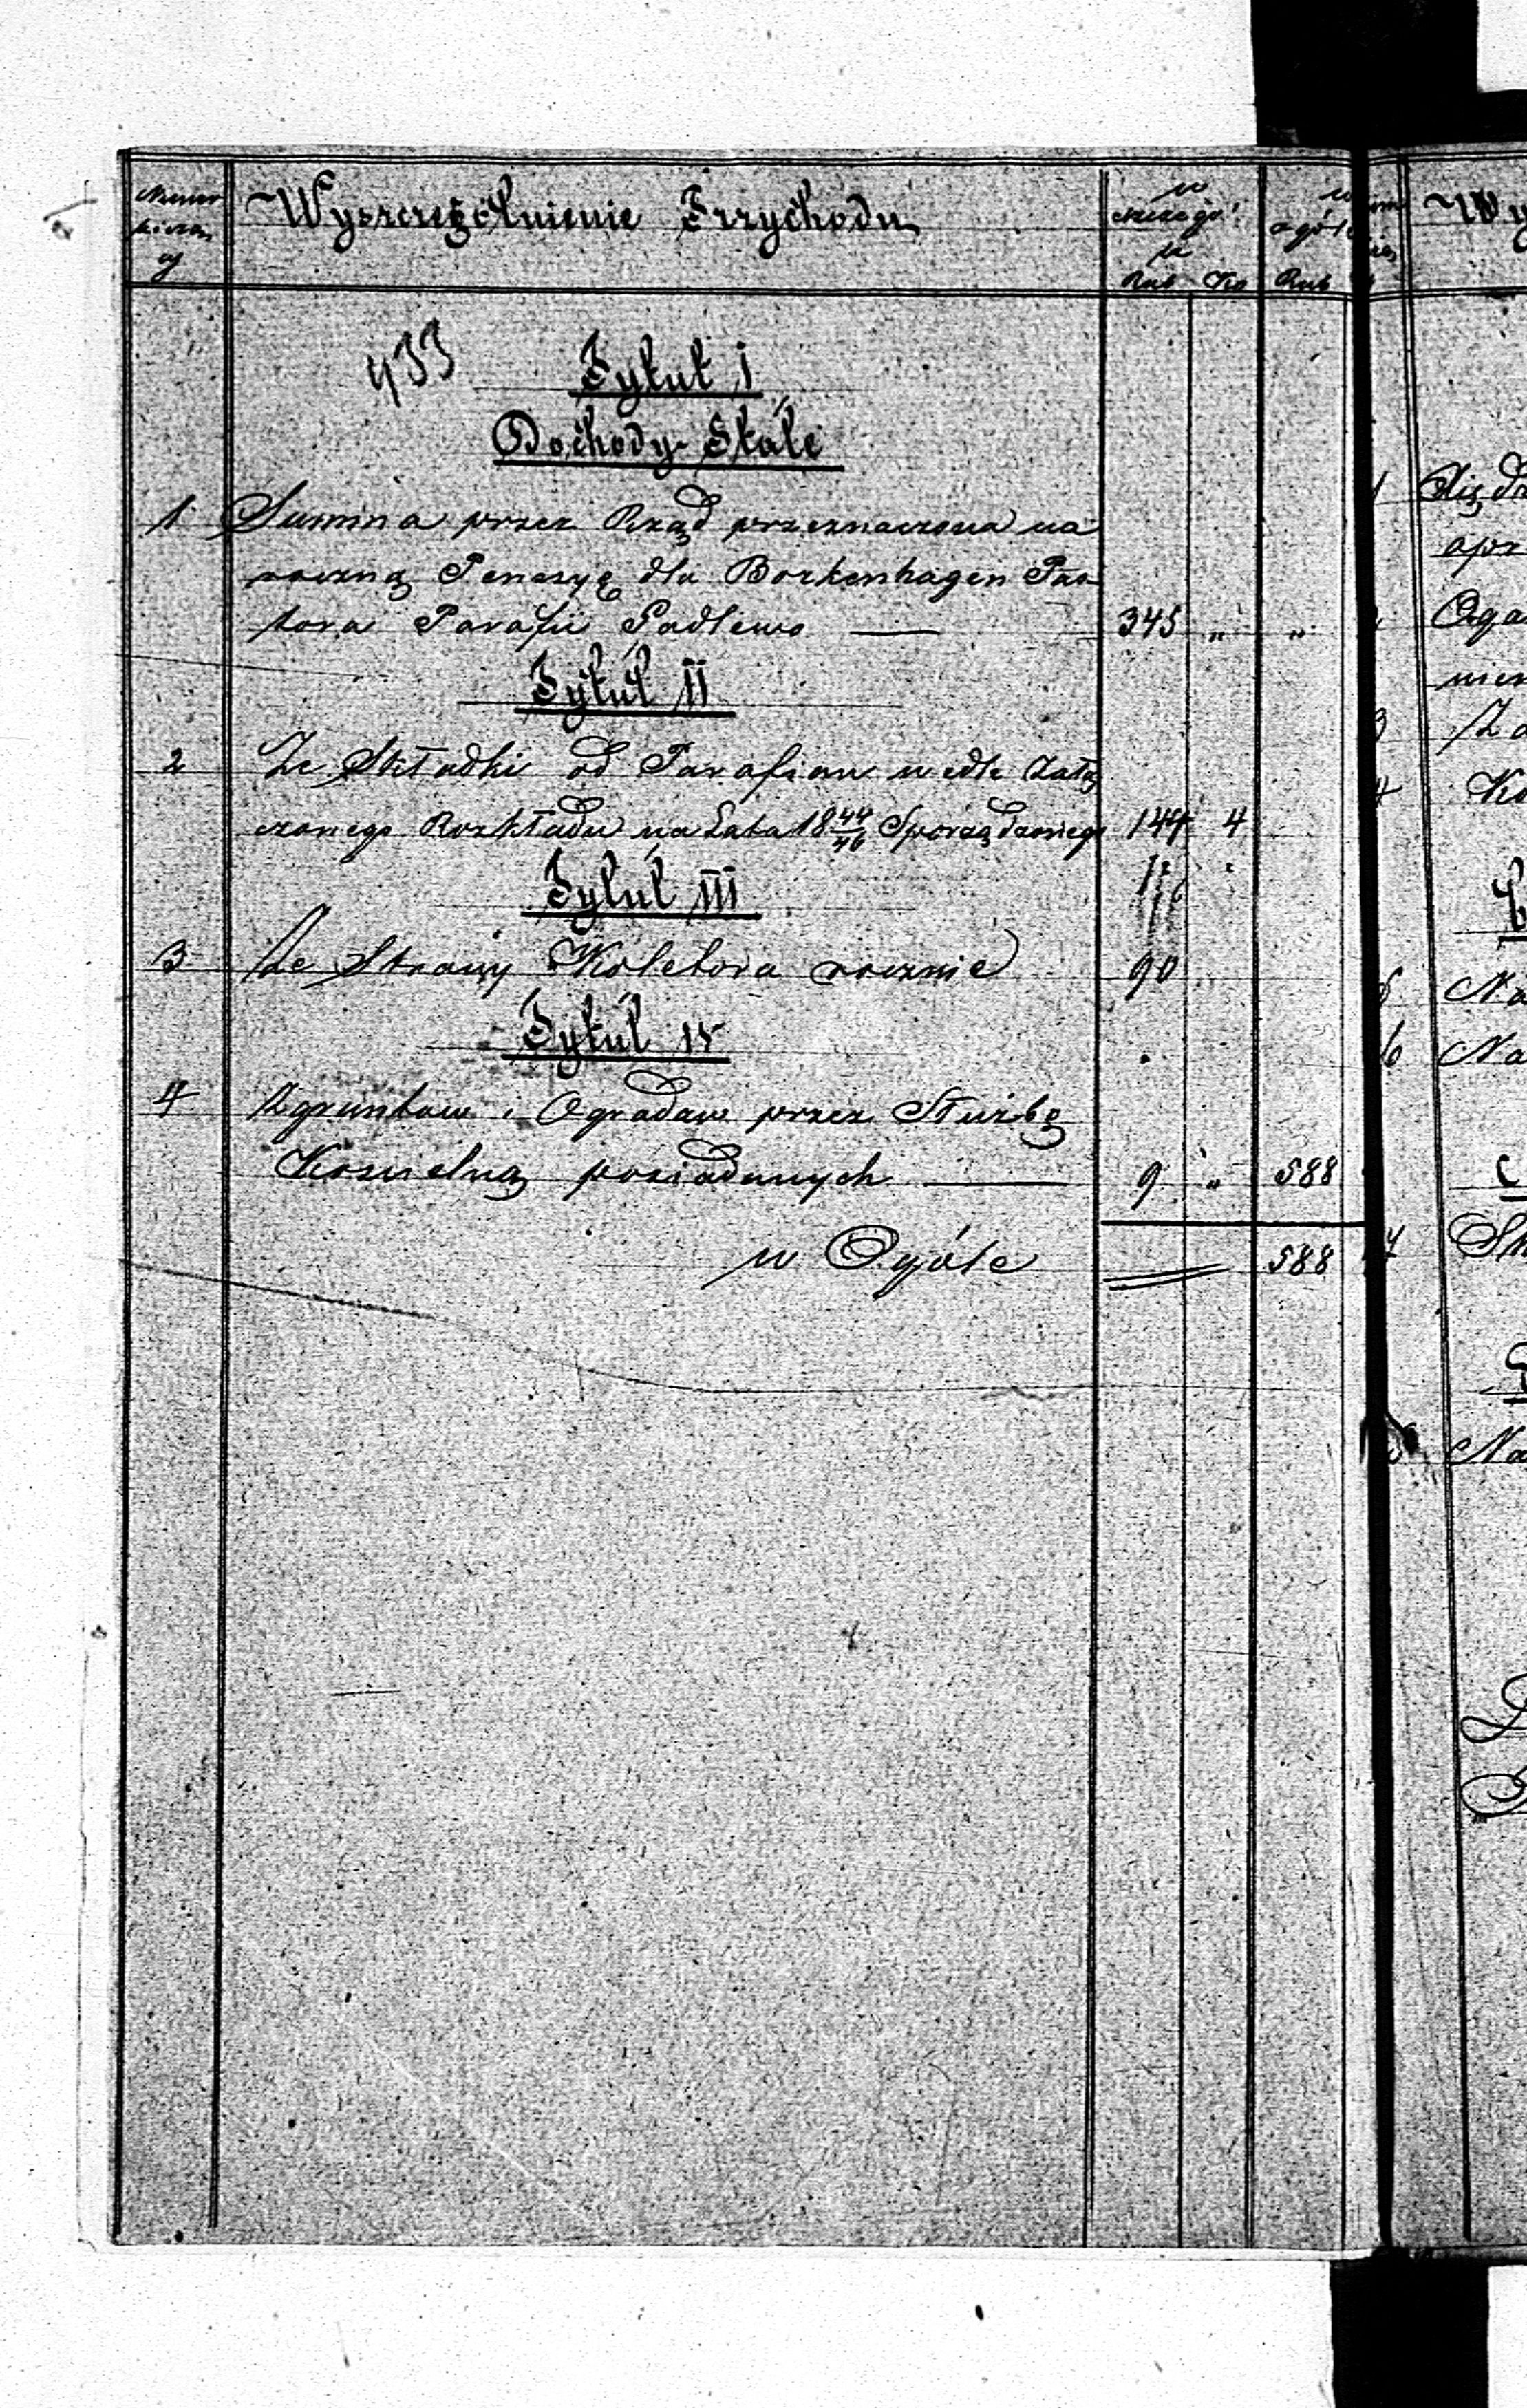 Numer w w
bieżąc Wyszczególnienie Przychodu szczegó: ogóle
y le
Rub Ko Rub
433 Tytuł I
Dochody Stałe
1 Summa przez Rząd przeznaczona na
roczną Penssyę dla Borkenhagen Pas
tora Parafii Godlewo — 345 „ „
Tytuł II
2 Ze Składki od Parafian wedle załą
czonego Rozkładu na Lata 18 44/46 Sporządzonego 144 4
Tytuł III
3 Ze Strony Kolatora rocznie 90
Tytuł IV
4 Z gruntow i Ogrodow przez Służbę
Koscielną posiadanych — 9 „ 588
w Ogóle 588
1
2
3
4
6
7
Na
Na
Na